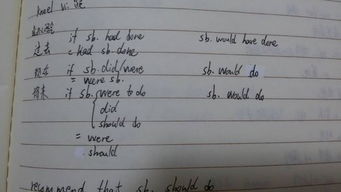 kneel vi. 跪
虚拟
过去 if sb. had done sb. would have done
= Had sb. done
现在 if sb. did/were sb. would do
= were sb.
将来 if sb. were to do sb. would do
did
should do
= were
should
recommend that sb. should do